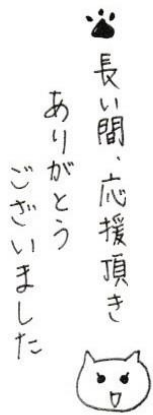 長い間、応援頂き
ありがとう
ございました